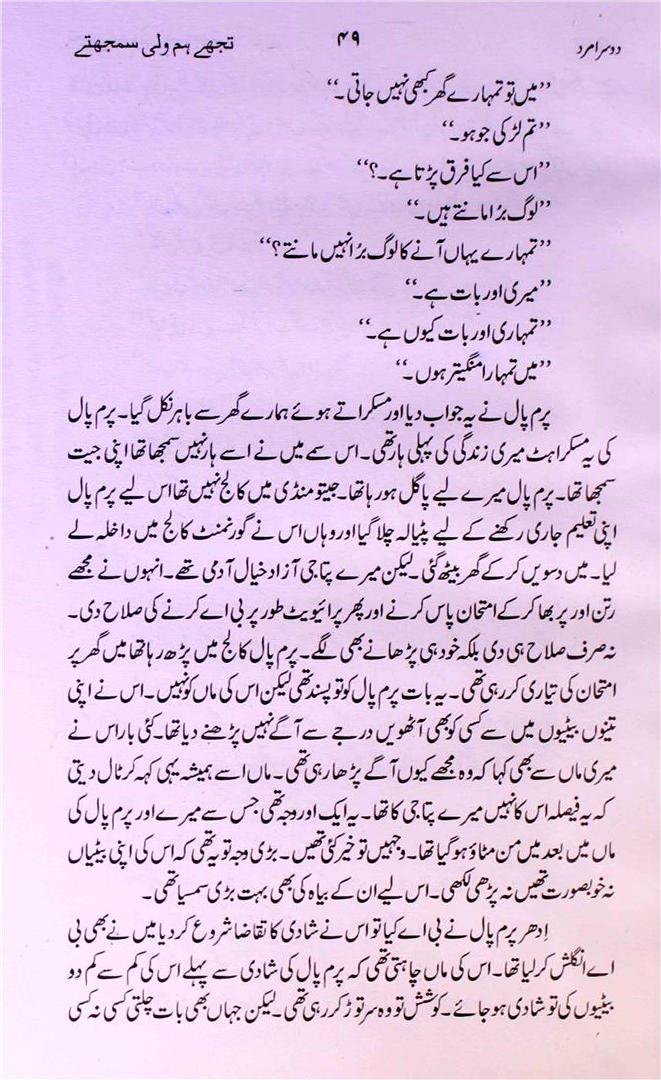 دوسرا مرد ۴۹ تجھے ہم ولی سمجھتے
’’میں تو تمہارے گھر کبھی نہیں جاتی۔‘‘
’’تم لڑکی جو ہو۔‘‘
’’اس سے کیا فرق پڑتا ہے۔؟‘‘
’’لوگ بڑا مانتے ہیں۔‘‘
’’تمہارے یہاں آنے کا لوگ بُرا نہیں مانتے؟‘‘
’’میری اور بات ہے۔‘‘
’’تمہاری اور بات کیوں ہے۔‘‘
’’میں تمہارا منگیتر ہوں۔‘‘
پرم پال نے یہ جواب دیا اور مسکراتے ہوئے ہمارے گھر سے باہر نکل گیا۔ پرم پال
کی یہ مسکراہٹ میری زندگی کی پہلی ہار تھی۔ اس سمے میں نے اسے ہار نہیں سمجھا تھا اپنی جیت
سمجھا تھا۔ پرم پال میرے لیے پاگل ہو رہا تھا۔ جیتو منڈی میں کالج نہیں تھا اس لیے پرم پال
اپنی تعلیم جاری رکھنے کے لیے پٹیالہ چلا گیا اور وہاں اس نے گورنمنٹ کالج میں داخلہ لے
لیا۔ میں دسویں کر کے گھر بیٹھ گئی۔ لیکن میرے پتا جی آزاد خیال آدمی تھے۔ انہوں نے مجھے
رتن اور پربھا کر کے امتحان پاس کرنے اور پھر پرائیویٹ طور پر بی اے کرنے کی صلاح دی۔
نہ صرف صلاح ہی دی بلکہ خود ہی پڑھانے بھی لگے۔ پرم پال کالج میں پڑھ رہا تھا میں گھر پر
امتحان کی تیاری کر رہی تھی۔ یہ بات پرم پال کو تو پسند تھی لیکن اس کی ماں کو نہیں۔ اس نے اپنی
تینوں بیٹیوں میں سے کسی کو بھی آٹھویں درجے سے آگے نہیں پڑھنے دیا تھا۔ کئی بار اس نے
میری ماں سے بھی کہا کہ وہ مجھے کیوں آگے پڑھا رہی تھی۔ ماں اسے ہمیشہ یہی کہہ کر ٹال دیتی
کہ یہ فیصلہ اس کا نہیں میرے پتا جی کا تھا۔ یہ ایک اور وجہ تھی جس سے میرے اور پرم پال کی
ماں میں بعد میں من مٹاؤ ہو گیا تھا۔ وجہیں تو خیر کئی تھیں۔ بڑی وجہ تو یہ تھی کہ اس کی اپنی بیٹیاں
نہ خوبصورت تھیں نہ پڑھی لکھی۔ اس لیے ان کے بیاہ کی بھی بہت بڑی سمسیا تھی۔
اِدھر پرم پال نے بی اے کیا تو اس نے شادی کا تقاضا شروع کر دیا میں نے بھی بی
اے انگلش کر لیا تھا۔ اس کی ماں چاہتی تھی کہ پرم پال کی شادی سے پہلے اس کی کم سے کم دو
بیٹیوں کی تو شادی ہو جائے۔ کوشش تو وہ سر توڑ کر رہی تھی۔ لیکن جہاں بھی بات چلتی کسی نہ کسی